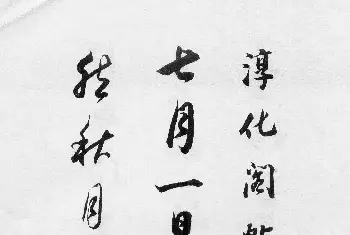 淳化阁帖
七月一日
然秋月